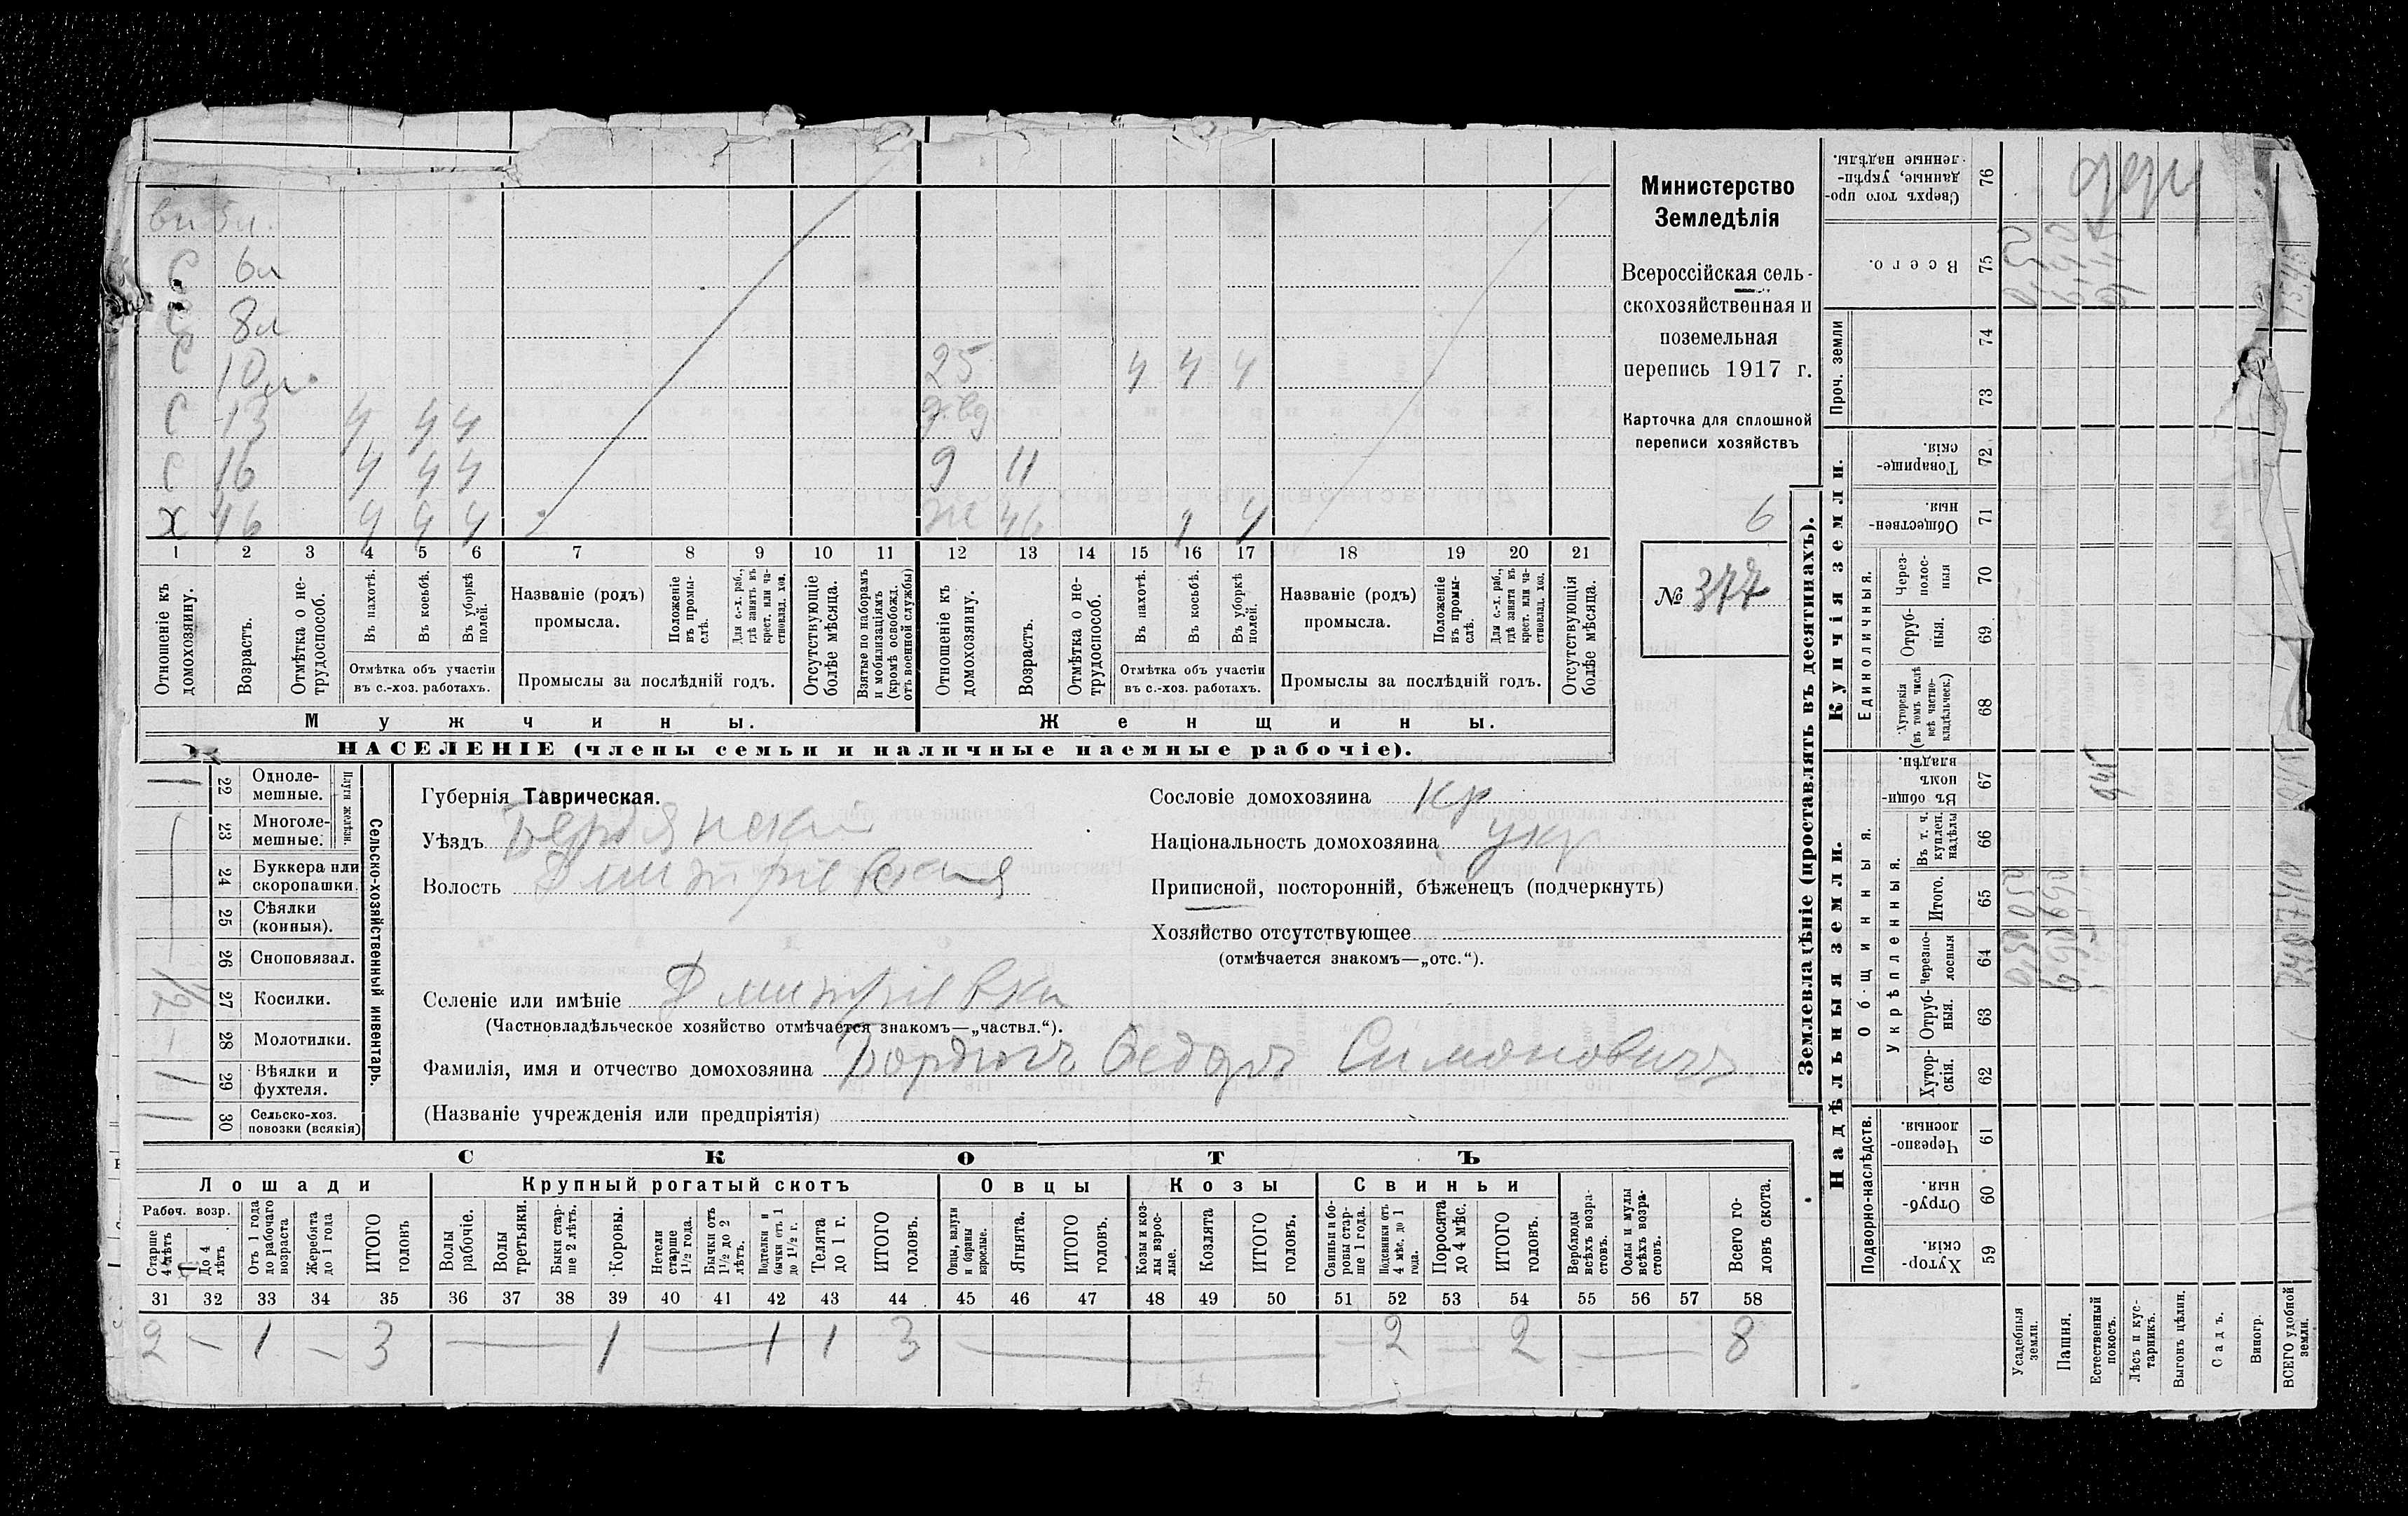 вн 3 л.
С 6 л
С 8 л
С 10 л. 25 ч ч ч
С 13 ч ч ч
С 16 ч ч ч 9 11
Х 46 ч ч ч 46 ч ч
1 2 3 4 5 6 7 8 9 10 11 12 13 14 15 16 17 18 19 20 21
Отношеніе къ домохозяину.
Возрастъ.
Отмѣтка о не-трудоспособ.
Въ пахотѣ.
Въ косьбѣ.
Въ уборкѣ полей.
Отмѣтка объ участіи въ с.-хоз. работахъ.
Названіе (родъ) промысла.
Положеніе въ промы-слѣ.
Для с.-х. раб., гдѣ занятъ въ крест. или ча-стновлад. хоз.
Промыслы за послѣдній годъ.
Отсутствующіе болѣе мѣсяца.
Взятые по наборамъ и мобилизаціямъ (кромѣ освобожд. отъ военной службы)
Отношеніе къ домохозяину.
Возрастъ.
Отмѣтка о не-трудоспособ.
Въ пахотѣ.
Въ косьбѣ.
Въ уборкѣ полей.
Отмѣтка объ участіи въ с.-хоз. работахъ.
Названіе (родъ) промысла.
Положеніе въ промы-слѣ.
Для с.-х. раб., гдѣ занята въ крест. или ча-стновлад. хоз.
Промыслы за послѣдній годъ.
Отсутствующія болѣе мѣсяца.
Мужчины. Женщины.
НАСЕЛЕНІЕ (члены семьи и наличные наемные рабочіе).
Министерство
Земледѣлія
Всероссійская сель-
скохозяйственная и
поземельная
перепись 1917 г.
Карточка для сплошной
переписи хозяйствъ
6
№ 377
Сельско-хозяйственный инвентарь.
Плуги желѣзн.
22 Одноле-мешные. 1
23 Многоле-мешные.
24 Буккера или скоропашки.
25 Сѣялки (конныя).
26 Сноповязал.
27 Косилки.
28 Молотилки.
29 Вѣялки и фухтеля. 1
30 Сельско-хоз. повозки (всякія) 1
Губернія Таврическая.
Уѣздъ Бердянскій
Волость Дмитріевская
Селеніе или имѣніе Дмитріевка
(Частновладѣльческое хозяйство отмѣчается знакомъ—„частвл.“).
Фамилія, имя и отчество домохозяина Бордюгъ Ѳедоръ Симоновичъ
(Названіе учрежденія или предпріятія)
Сословіе домохозяина Кр
Національность домохозяина укр
Приписной, посторонній, бѣженецъ (подчеркнуть)
Хозяйство отсутствующее
(отмѣчается знакомъ—„отс.“).
СКОТЪ
Лошади
Рабоч. возр.
Старше 4 лѣтъ
До 4 лѣтъ
Отъ 1 года до рабочаго возраста
Жеребята до 1 года
ИТОГО головъ
Крупный рогатый скотъ
Волы рабочіе.
Волы третьяки.
Быки стар-ше 2 лѣтъ.
Коровы.
Нетели старше 1½ года.
Бычки отъ 1½ до 2 лѣтъ.
Подтелки и бычки отъ 1 до 1½ г.
Телята до 1 г.
ИТОГО головъ.
Овцы
Овцы, валухи и бараны взрослые.
Ягнята.
ИТОГО головъ.
Козы
Козы и коз-лы взрос-лые.
Козлята
ИТОГО головъ.
Свиньи
Свиньи и бо-ровы стар-ше 1 года.
Подсвинки отъ 4 мѣс. до 1 года.
Поросята до 4 мѣс.
ИТОГО головъ.
Верблюды всѣхъ возра-стовъ.
Ослы и мулы всѣхъ возра-стовъ.
Всего го-ловъ скота.
31 32 33 34 35 36 37 38 39 40 41 42 43 44 45 46 47 48 49 50 51 52 53 54 55 56 57 58
2 — 1 — 3 — 1 — 1 1 3 — 2 — 2 — 8
Землевладѣніе (проставлять въ десятинахъ).
Надѣльныя земли.
Подворно-наслѣдств.
Хутор-скія. 59
Отруб-ныя. 60
Черезпо-лосныя. 61
Общинныя.
Укрѣпленныя.
Хутор-скія. 62
Отруб-ныя. 63
Черезпо-лосныя 64
Итого. 65
Въ т. ч. куплен. надѣлы 66
Въ общи-номъ владѣн. 67
Купчія земли.
Единоличныя.
Хуторскія (въ томъ числѣ всѣ частно-владѣльческ.) 68
Отруб-ныя. 69
Через-полос-ныя 70
Обществен-ныя. 71
Товарище-скія. 72
Проч. земли
73
74
Всего. 75
Сверхъ того про-данные, укрѣп-ленные надѣлы. 76
Усадебныя земли.
Пашня.
Естественный покосъ.
Лѣсъ и кус-тарникъ.
Выгонъ цѣлин.
Садъ.
Виногр.
ВСЕГО удобной земли.